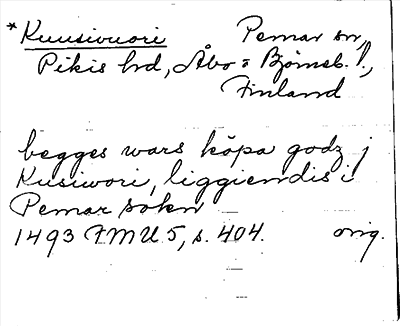 *Kuusivuori Pemar sn,
Pikis hd, Åbo o Björneb. l.,
Finland
begges wars köpa godz j
Kusiwori, liggiendis i
Pemar sokn
1493 FMU 5, s. 404. orig.